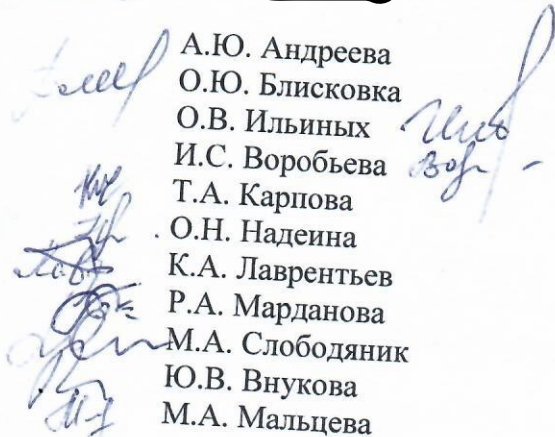 А.Ю. Андреева
О.Ю. Блисковка
О.В. Ильиных
И.С. Воробьева
Т.А. Карпова
О.Н. Надеина
К.А. Лаврентьев
Р.А. Марданова
М.А. Слободяник
Ю.В. Внукова
М.А. Мальцева